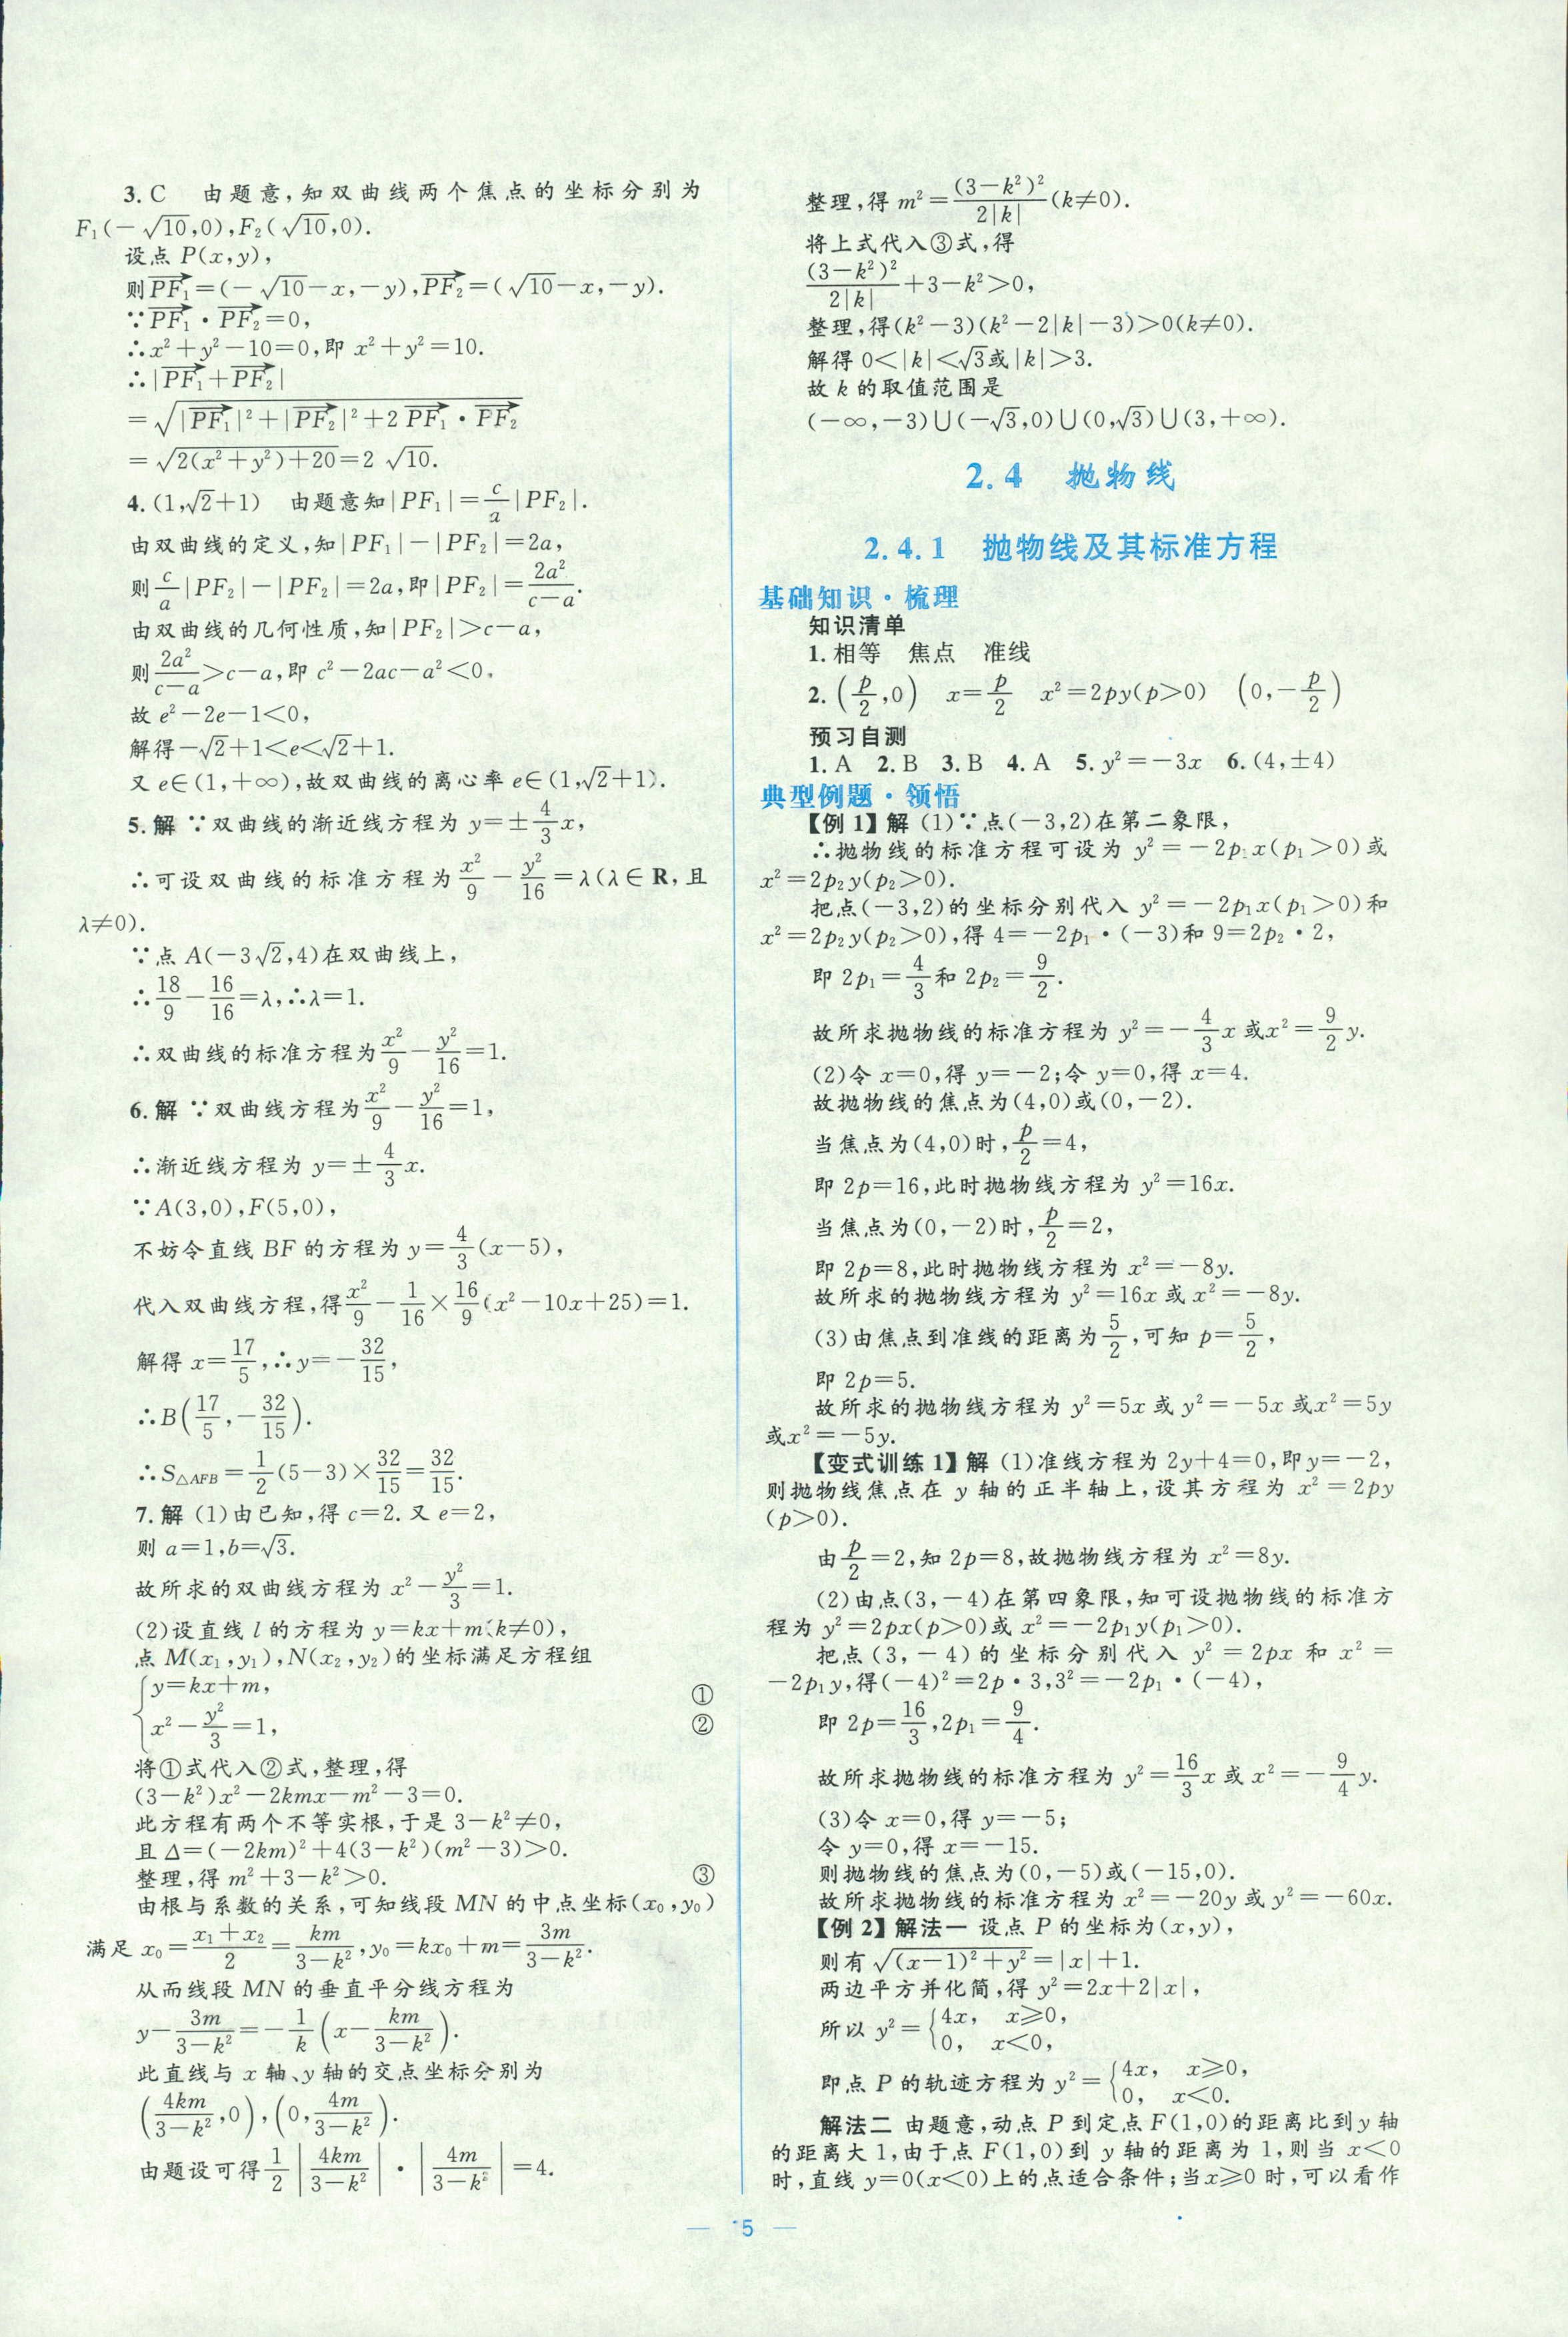 3. C　由题意,知双曲线两个焦点的坐标分别为
F₁(-√10,0),F₂(√10,0).
设点 P(x,y),
则$\overrightarrow{PF_1}$=(-√10-x,-y),$\overrightarrow{PF_2}$=(√10-x,-y).
∵$\overrightarrow{PF_1}$·$\overrightarrow{PF_2}$=0,
∴x²+y²-10=0,即 x²+y²=10.
∴|$\overrightarrow{PF_1}$+$\overrightarrow{PF_2}$|
=$\sqrt{|\overrightarrow{PF_1}|^2+|\overrightarrow{PF_2}|^2+2\overrightarrow{PF_1}·\overrightarrow{PF_2}}$
=$\sqrt{2(x^2+y^2)+20}$=2√10.
4. (1,√2+1)　由题意知|PF₁|=$\frac{c}{a}$|PF₂|.
由双曲线的定义,知|PF₁|-|PF₂|=2a,
则$\frac{c}{a}$|PF₂|-|PF₂|=2a,即|PF₂|=$\frac{2a^2}{c-a}$.
由双曲线的几何性质,知|PF₂|>c-a,
则$\frac{2a^2}{c-a}$>c-a,即 c²-2ac-a²<0,
故 e²-2e-1<0,
解得-√2+1<e<√2+1.
又 e∈(1,+∞),故双曲线的离心率 e∈(1,√2+1).
5. 解 ∵双曲线的渐近线方程为 y=±$\frac{4}{3}$x,
∴可设双曲线的标准方程为$\frac{x^2}{9}$-$\frac{y^2}{16}$=λ(λ∈R,且
λ≠0).
∵点 A(-3√2,4)在双曲线上,
∴$\frac{18}{9}$-$\frac{16}{16}$=λ,∴λ=1.
∴双曲线的标准方程为$\frac{x^2}{9}$-$\frac{y^2}{16}$=1.
6. 解 ∵双曲线方程为$\frac{x^2}{9}$-$\frac{y^2}{16}$=1,
∴渐近线方程为 y=±$\frac{4}{3}$x.
∵A(3,0),F(5,0),
不妨令直线 BF 的方程为 y=$\frac{4}{3}$(x-5),
代入双曲线方程,得$\frac{x^2}{9}$-$\frac{1}{16}$×$\frac{16}{9}$(x²-10x+25)=1.
解得 x=$\frac{17}{5}$,∴y=-$\frac{32}{15}$,
∴B($\frac{17}{5}$,-$\frac{32}{15}$).
∴S△AFB=$\frac{1}{2}$(5-3)×$\frac{32}{15}$=$\frac{32}{15}$.
7. 解 (1)由已知,得 c=2. 又 e=2,
则 a=1,b=√3.
故所求的双曲线方程为 x²-$\frac{y^2}{3}$=1.
(2)设直线 l 的方程为 y=kx+m(k≠0),
点 M(x₁,y₁),N(x₂,y₂)的坐标满足方程组
{y=kx+m, ①
x²-$\frac{y^2}{3}$=1, ②
将①式代入②式,整理,得
(3-k²)x²-2kmx-m²-3=0.
此方程有两个不等实根,于是 3-k²≠0,
且 Δ=(-2km)²+4(3-k²)(m²-3)>0.
整理,得 m²+3-k²>0. ③
由根与系数的关系,可知线段 MN 的中点坐标(x₀,y₀)
满足 x₀=$\frac{x_1+x_2}{2}$=$\frac{km}{3-k^2}$,y₀=kx₀+m=$\frac{3m}{3-k^2}$.
从而线段 MN 的垂直平分线方程为
y-$\frac{3m}{3-k^2}$=-$\frac{1}{k}$(x-$\frac{km}{3-k^2}$).
此直线与 x 轴、y 轴的交点坐标分别为
($\frac{4km}{3-k^2}$,0),(0,$\frac{4m}{3-k^2}$).
由题设可得$\frac{1}{2}$|$\frac{4km}{3-k^2}$|·|$\frac{4m}{3-k^2}$|=4.
整理,得 m²=$\frac{(3-k^2)^2}{2|k|}$(k≠0).
将上式代入③式,得
$\frac{(3-k^2)^2}{2|k|}$+3-k²>0,
整理,得(k²-3)(k²-2|k|-3)>0(k≠0).
解得 0<|k|<√3或|k|>3.
故 k 的取值范围是
(-∞,-3)∪(-√3,0)∪(0,√3)∪(3,+∞).
2.4　抛物线
2.4.1　抛物线及其标准方程
基础知识·梳理
知识清单
1. 相等　焦点　准线
2. ($\frac{p}{2}$,0)　x=$\frac{p}{2}$　x²=2py(p>0)　(0,-$\frac{p}{2}$)
预习自测
1. A　2. B　3. B　4. A　5. y²=-3x　6. (4,±4)
典型例题·领悟
【例 1】解 (1)∵点(-3,2)在第二象限,
∴抛物线的标准方程可设为 y²=-2p₁x(p₁>0)或
x²=2p₂y(p₂>0).
把点(-3,2)的坐标分别代入 y²=-2p₁x(p₁>0)和
x²=2p₂y(p₂>0),得 4=-2p₁·(-3)和 9=2p₂·2,
即 2p₁=$\frac{4}{3}$和 2p₂=$\frac{9}{2}$.
故所求抛物线的标准方程为 y²=-$\frac{4}{3}$x 或x²=$\frac{9}{2}$y.
(2)令 x=0,得 y=-2;令 y=0,得 x=4.
故抛物线的焦点为(4,0)或(0,-2).
当焦点为(4,0)时,$\frac{p}{2}$=4,
即 2p=16,此时抛物线方程为 y²=16x.
当焦点为(0,-2)时,$\frac{p}{2}$=2,
即 2p=8,此时抛物线方程为 x²=-8y.
故所求的抛物线方程为 y²=16x 或 x²=-8y.
(3)由焦点到准线的距离为$\frac{5}{2}$,可知 p=$\frac{5}{2}$,
即 2p=5.
故所求的抛物线方程为 y²=5x 或 y²=-5x 或x²=5y
或x²=-5y.
【变式训练 1】解 (1)准线方程为 2y+4=0,即y=-2,
则抛物线焦点在 y 轴的正半轴上,设其方程为 x²=2py
(p>0).
由$\frac{p}{2}$=2,知 2p=8,故抛物线方程为 x²=8y.
(2)由点(3,-4)在第四象限,知可设抛物线的标准方
程为 y²=2px(p>0)或 x²=-2p₁y(p₁>0).
把点(3,-4)的坐标分别代入 y²=2px 和 x²=
-2p₁y,得(-4)²=2p·3,3²=-2p₁·(-4),
即 2p=$\frac{16}{3}$,2p₁=$\frac{9}{4}$.
故所求抛物线的标准方程为 y²=$\frac{16}{3}$x 或 x²=-$\frac{9}{4}$y.
(3)令 x=0,得 y=-5;
令 y=0,得 x=-15.
则抛物线的焦点为(0,-5)或(-15,0).
故所求抛物线的标准方程为 x²=-20y 或 y²=-60x.
【例 2】解法一 设点 P 的坐标为(x,y),
则有$\sqrt{(x-1)^2+y^2}$=|x|+1.
两边平方并化简,得 y²=2x+2|x|,
所以 y²={4x,　x≥0,
0,　x<0,
即点 P 的轨迹方程为 y²={4x,　x≥0,
0,　x<0.
解法二 由题意,动点 P 到定点 F(1,0)的距离比到y 轴
的距离大 1,由于点 F(1,0)到 y 轴的距离为 1,则当 x<0
时,直线 y=0(x<0)上的点适合条件;当x≥0 时,可以看作
— 5 —